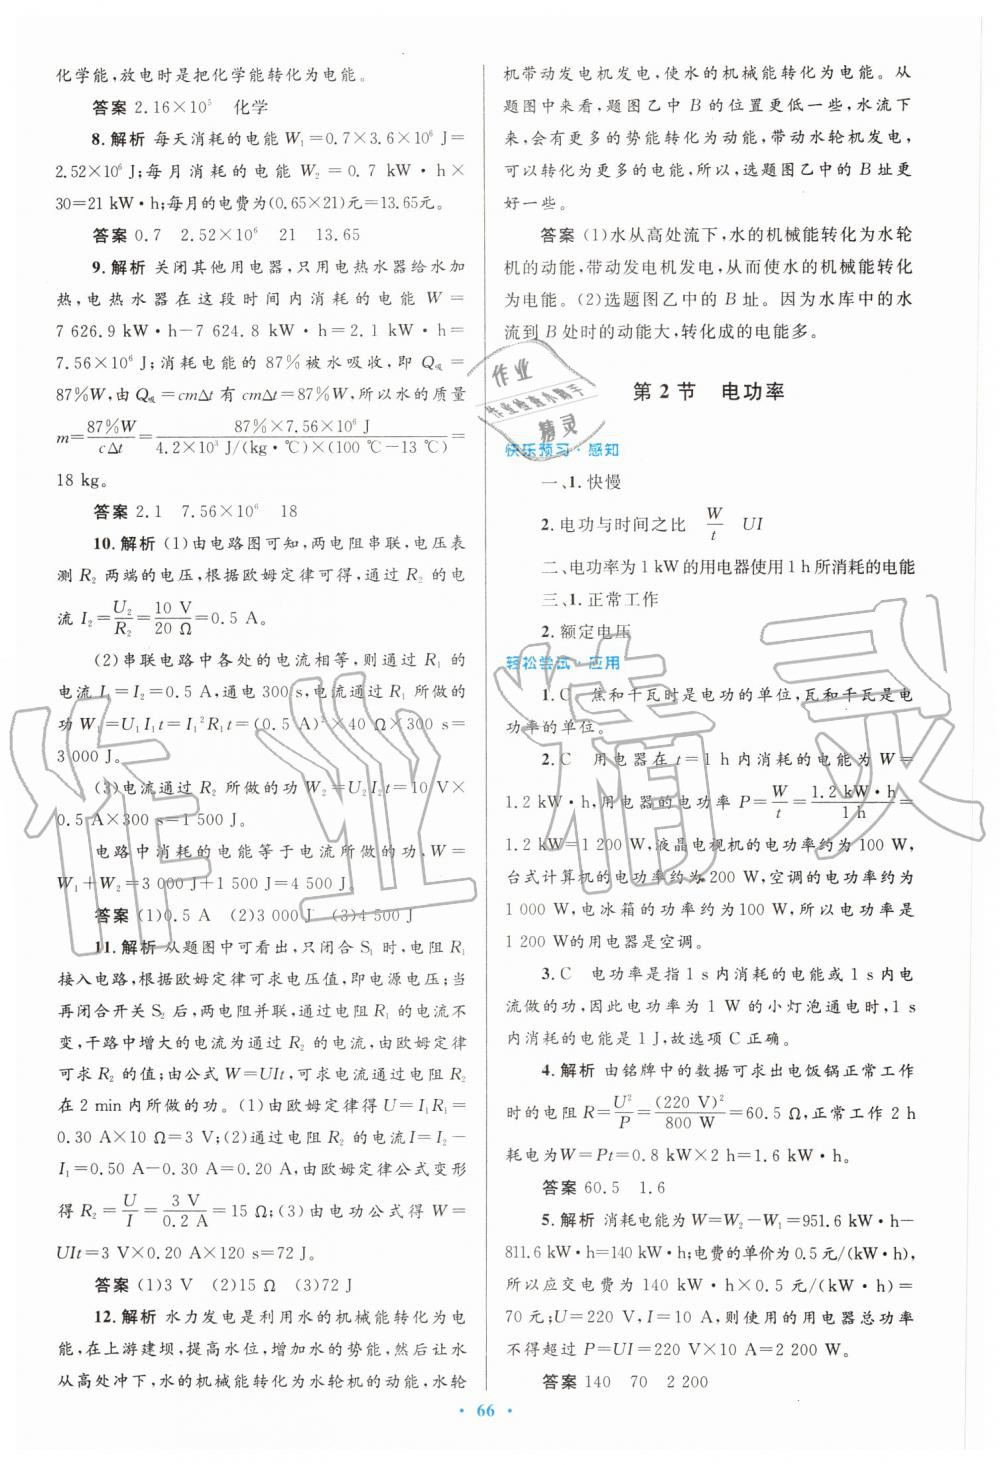 化学能,放电时是把化学能转化为电能。
答案 2.16×10⁵ 化学
8.解析 每天消耗的电能W₁=0.7×3.6×10⁶ J=
2.52×10⁶ J;每月消耗的电能W₂=0.7 kW·h×
30=21 kW·h;每月的电费为(0.65×21)元=13.65元。
答案 0.7 2.52×10⁶ 21 13.65
9.解析 关闭其他用电器,只用电热水器给水加
热,电热水器在这段时间内消耗的电能W=
7 626.9 kW·h-7 624.8 kW·h=2.1 kW·h=
7.56×10⁶ J;消耗电能的87%被水吸收,即Q吸=
87%W,由Q吸=cmΔt有cmΔt=87%W,所以水的质量
m=87%W/cΔt=87%×7.56×10⁶ J/4.2×10³ J/(kg·℃)×(100 ℃-13 ℃)=
18 kg。
答案 2.1 7.56×10⁶ 18
10.解析 (1)由电路图可知,两电阻串联,电压表
测R₂两端的电压,根据欧姆定律可得,通过R₂的电
流I₂=U₂/R₂=10 V/20 Ω=0.5 A。
(2)串联电路中各处的电流相等,则通过R₁的
电流I₁=I₂=0.5 A,通电300 s,电流通过R₁所做的
功W₁=U₁I₁t=I₁²R₁t=(0.5 A)²×40 Ω×300 s=
3 000 J。
(3)电流通过R₂所做的功W₂=U₂I₂t=10 V×
0.5 A×300 s=1 500 J。
电路中消耗的电能等于电流所做的功,W=
W₁+W₂=3 000 J+1 500 J=4 500 J。
答案 (1)0.5 A (2)3 000 J (3)4 500 J
11.解析 从题图中可看出,只闭合S₁时,电阻R₁
接入电路,根据欧姆定律可求电压值,即电源电压;当
再闭合开关S₂后,两电阻并联,通过电阻R₁的电流不
变,干路中增大的电流为通过R₂的电流,由欧姆定律
可求R₂的值;由公式W=UIt,可求电流通过电阻R₂
在2 min内所做的功。(1)由欧姆定律得U=I₁R₁=
0.30 A×10 Ω=3 V;(2)通过电阻R₂的电流I=I₂-
I₁=0.50 A-0.30 A=0.20 A,由欧姆定律公式变形
得R₂=U/I=3 V/0.2 A=15 Ω;(3)由电功公式得W=
UIt=3 V×0.20 A×120 s=72 J。
答案 (1)3 V (2)15 Ω (3)72 J
12.解析 水力发电是利用水的机械能转化为电
能,在上游建坝,提高水位,增加水的势能,并让水
从高处冲下,水的机械能转化为水轮机的动能,水轮
机带动发电机发电,使水的机械能转化为电能。从
题图中来看,题图乙中B的位置更低一些,水流下
来,会有更多的势能转化为动能,带动水轮机发电,
可以转化为更多的电能,所以,选题图乙中的B址更
好一些。
答案 (1)水从高处流下,水的机械能转化为水轮
机的动能,带动发电机发电,从而使水的机械能转化
为电能。(2)选题图乙中的B址。因为水库中的水
流到B处时的动能大,转化成的电能多。
第2节 电功率
快乐预习·感知
一、1.快慢
2.电功与时间之比 W/t UI
二、电功率为1 kW的用电器使用1 h所消耗的电能
三、1.正常工作
2.额定电压
轻松尝试·应用
1.C 焦和千瓦时是电功的单位,瓦和千瓦是电
功率的单位。
2.C 用电器在t=1 h内消耗的电能为W=
1.2 kW·h,用电器的电功率P=W/t=1.2 kW·h/1 h=
1.2 kW=1 200 W,液晶电视机的电功率约为100 W,
台式计算机的电功率约为200 W,空调的电功率约为
1 000 W,电冰箱的功率约为100 W,所以电功率是
1 200 W的用电器是空调。
3.C 电功率是指1 s内消耗的电能或1 s内电
流做的功,因此电功率为1 W的小灯泡通电时,1 s
内消耗的电能是1 J,故选项C正确。
4.解析 由铭牌中的数据可求出电饭锅正常工作
时的电阻R=U²/P=(220 V)²/800 W=60.5 Ω,正常工作2 h
耗电为W=Pt=0.8 kW×2 h=1.6 kW·h。
答案 60.5 1.6
5.解析 消耗电能为W=W₂-W₁=951.6 kW·h-
811.6 kW·h=140 kW·h;电费的单价为0.5元/(kW·h),
所以应交电费为140 kW·h×0.5元/(kW·h)=
70元;U=220 V,I=10 A,则使用的用电器总功率
不得超过P=UI=220 V×10 A=2 200 W。
答案 140 70 2 200
·66·
作业
作业检查小助手
精灵
作业精灵